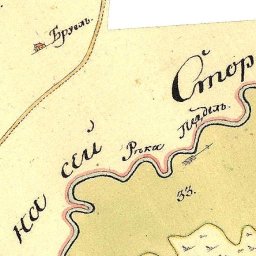 Бруель.
на сей Стор
Рѣка Педель.
33.